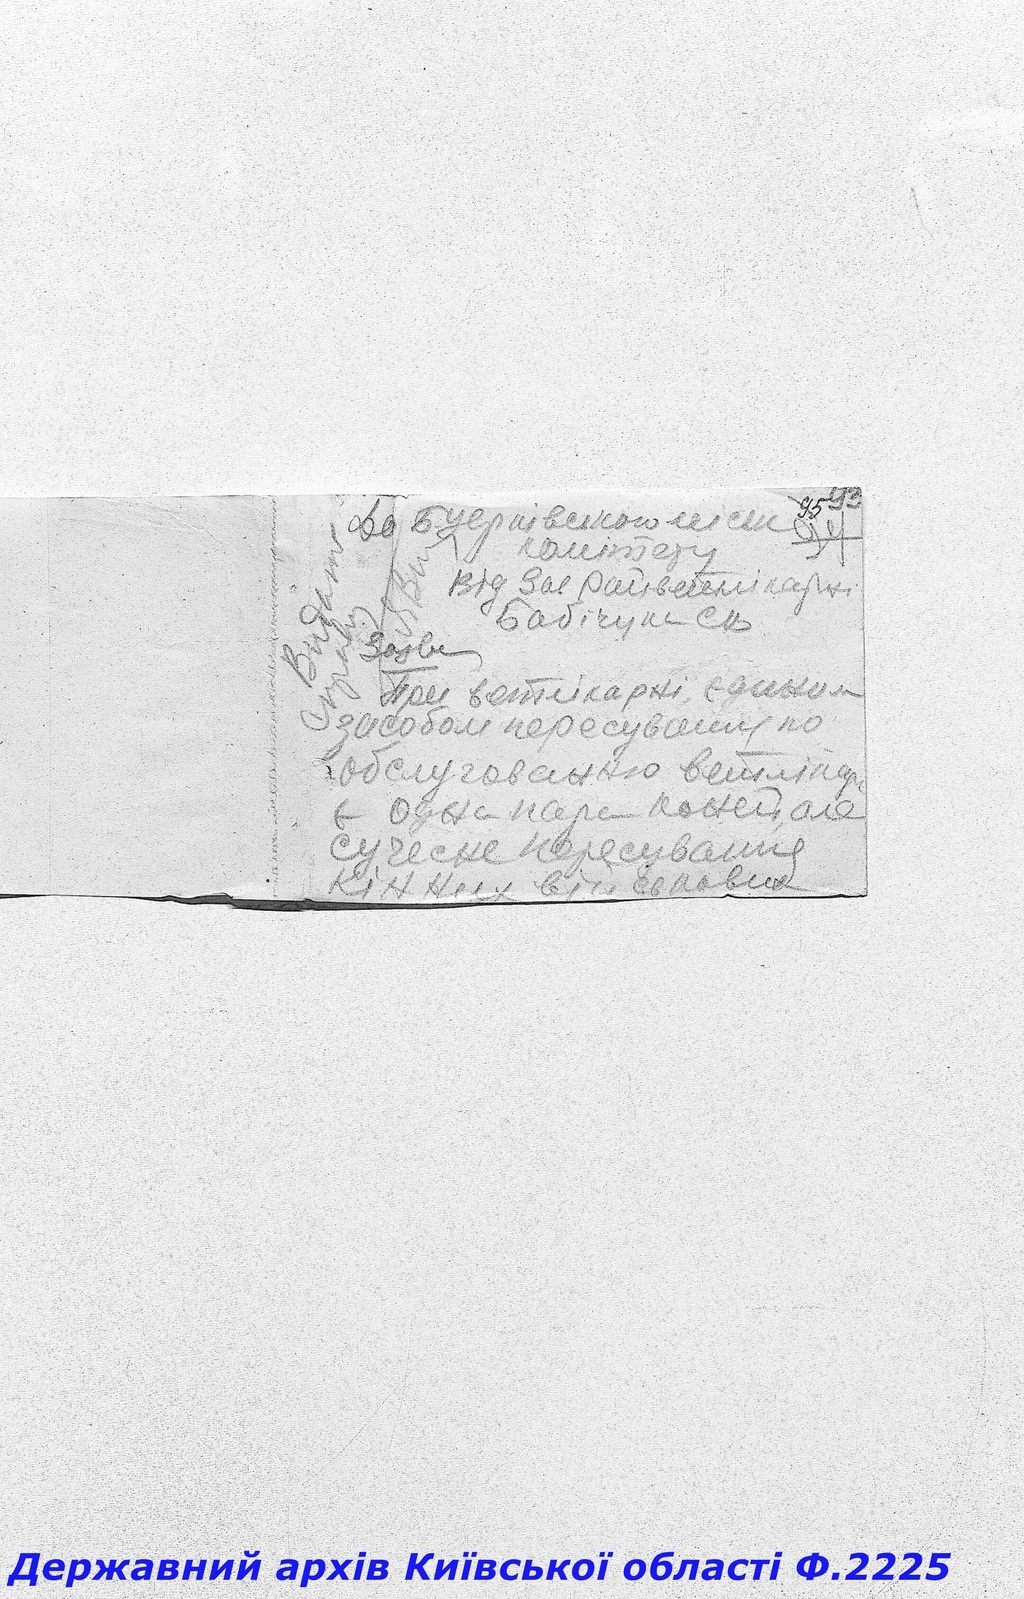 95 93
До Буернівського міськ
комітету
Від Зав Райветлікарні
Бабічука
Заява
При ветлікарні, єдиним
засобом пересування по
обслугованню ветлікар
є одна пара коней, але
сучесне пересування
кінних військових
Видати
справку
Державний архів Київської області Ф.2225